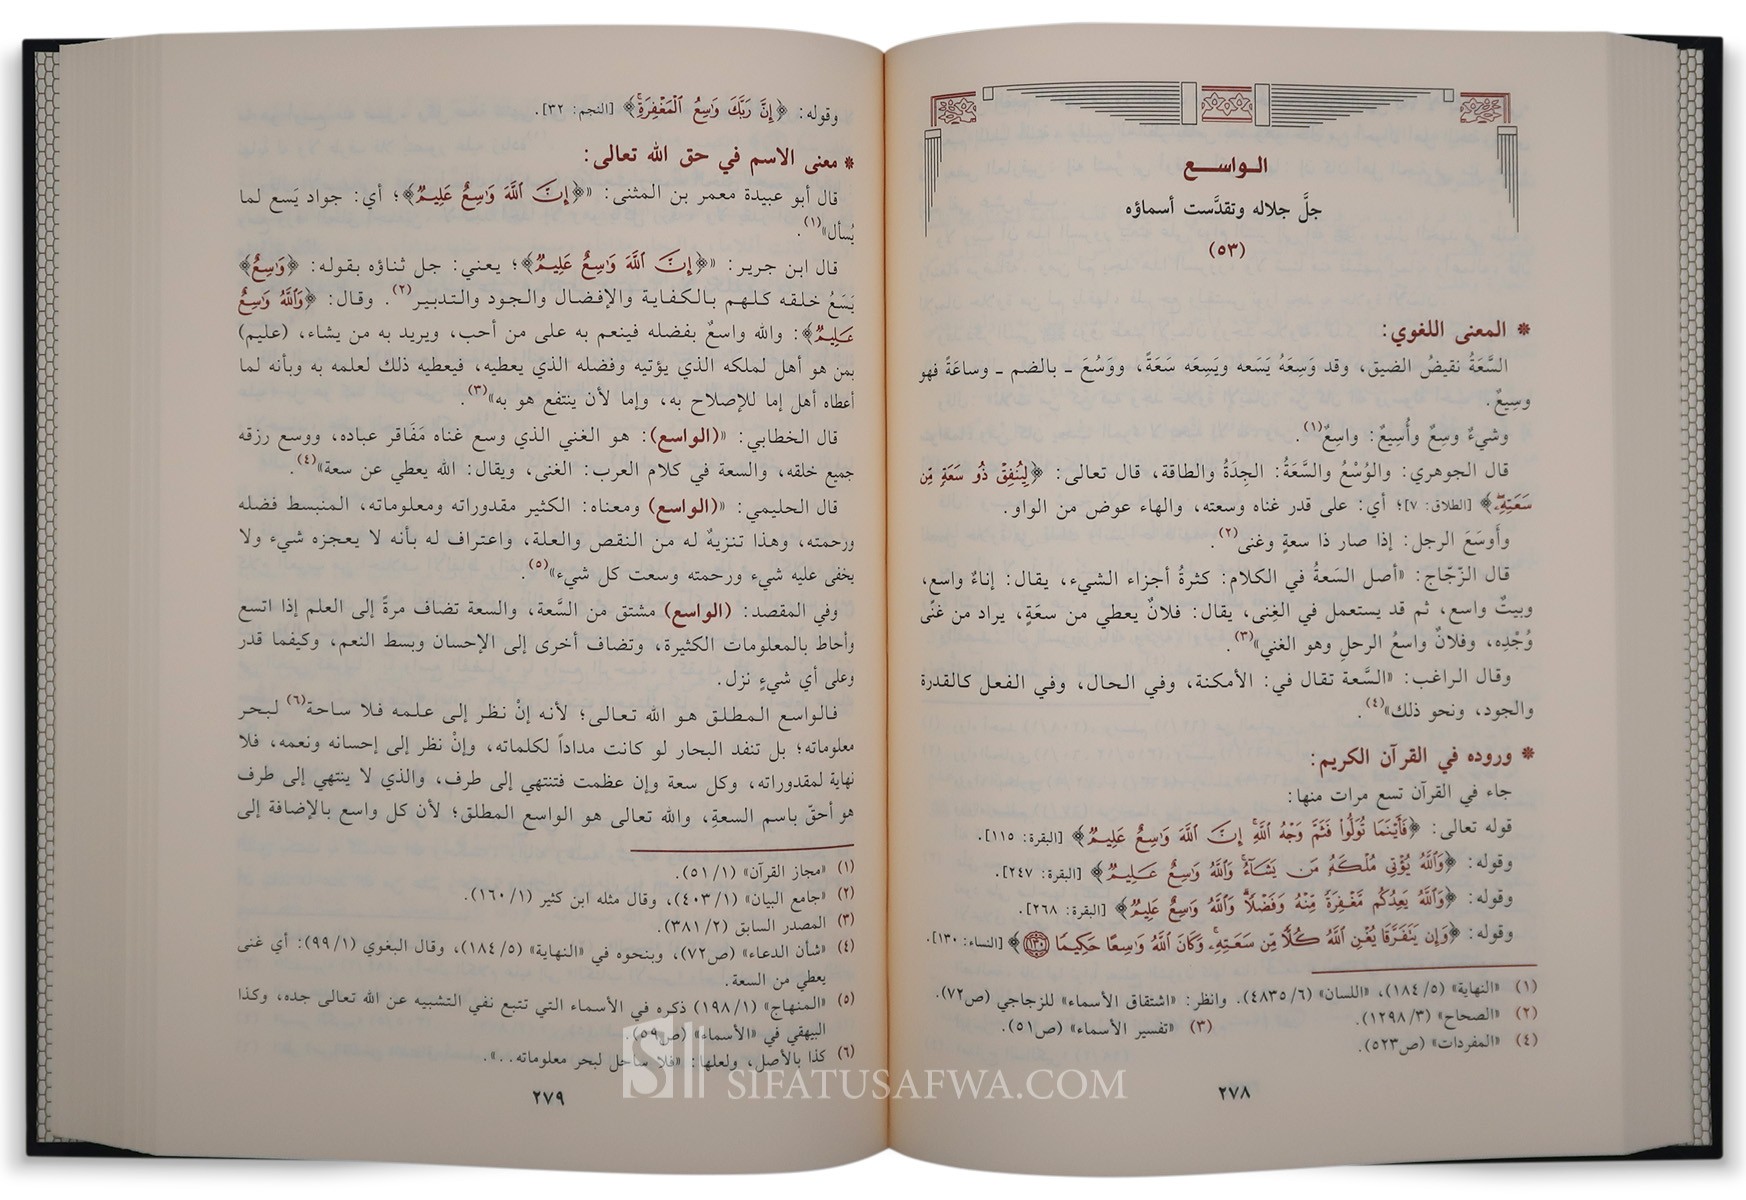 الـواســـع
جلَّ جلاله وتقدَّست أسماؤه
(٥٣)
* المعنى اللغوي:
السَّعَةُ نقيضُ الضيق، وقد وَسِعَهُ يَسَعه ويَسِعَه سَعَةً، ووَسُعَ ـ بالضم ـ وساعَةً فهو
وسِيعٌ.
وشيءٌ وسِعٌ وأُسِيعٌ: واسِعٌ(١).
قال الجوهري: والوُسْعُ والسَّعَةُ: الجِدَةُ والطاقة، قال تعالى: ﴿لِيُنفِقْ ذُو سَعَةٍ مِّن
سَعَتِهِۦ﴾ [الطلاق: ٧]؛ أي: على قدر غناه وسعته، والهاء عوض من الواو.
وأَوسَعَ الرجل: إذا صار ذا سعةٍ وغنى(٢).
قال الزّجّاج: «أصل السَعةُ في الكلام: كثرةُ أجزاء الشيء، يقال: إناءٌ واسع،
وبيتٌ واسع، ثم قد يستعمل في الغِنى، يقال: فلانٌ يعطي من سعَةٍ، يراد من غنًى
وُجْدِه، وفلانٌ واسعُ الرحلِ وهو الغني»(٣).
وقال الراغب: «السَّعة تقال في: الأمكنة، وفي الحال، وفي الفعل كالقدرة
والجود، ونحو ذلك»(٤).
* وروده في القرآن الكريم:
جاء في القرآن تسع مرات منها:
قوله تعالى: ﴿فَأَيْنَمَا تُوَلُّوا۟ فَثَمَّ وَجْهُ ٱللَّهِ إِنَّ ٱللَّهَ وَٰسِعٌ عَلِيمٌ﴾ [البقرة: ١١٥].
وقوله: ﴿وَٱللَّهُ يُؤْتِى مُلْكَهُۥ مَن يَشَآءُ وَٱللَّهُ وَٰسِعٌ عَلِيمٌ﴾ [البقرة: ٢٤٧].
وقوله: ﴿وَٱللَّهُ يَعِدُكُم مَّغْفِرَةً مِّنْهُ وَفَضْلًا وَٱللَّهُ وَٰسِعٌ عَلِيمٌ﴾ [البقرة: ٢٦٨].
وقوله: ﴿وَإِن يَتَفَرَّقَا يُغْنِ ٱللَّهُ كُلًّا مِّن سَعَتِهِۦ وَكَانَ ٱللَّهُ وَٰسِعًا حَكِيمًا ١٣٠﴾ [النساء: ١٣٠].
(١) «النهاية» (١٨٤/٥)، «اللسان» (٤٨٣٥/٦). وانظر: «اشتقاق الأسماء» للزجاجي (ص٧٢).
(٢) «الصحاح» (١٢٩٨/٣). (٣) «تفسير الأسماء» (ص٥١).
(٤) «المفردات» (ص٥٢٣).
٢٧٨
وقوله: ﴿إِنَّ رَبَّكَ وَٰسِعُ ٱلْمَغْفِرَةِ﴾ [النجم: ٣٢].
* معنى الاسم في حق الله تعالى:
قال أبو عبيدة معمر بن المثنى: «﴿إِنَّ ٱللَّهَ وَٰسِعٌ عَلِيمٌ﴾؛ أي: جواد يَسع لما
يُسأل»(١).
قال ابن جرير: «﴿إِنَّ ٱللَّهَ وَٰسِعٌ عَلِيمٌ﴾؛ يعني: جل ثناؤه بقوله: ﴿وَٰسِعٌ﴾
يَسَعُ خلقه كلهم بالكفاية والإفضال والجود والتدبير(٢). وقال: ﴿وَٱللَّهُ وَٰسِعٌ
عَلِيمٌ﴾: والله واسعٌ بفضله فينعم به على من أحب، ويريد به من يشاء، (عليم)
بمن هو أهل لملكه الذي يؤتيه وفضله الذي يعطيه، فيعطيه ذلك لعلمه به وبأنه لما
أعطاه أهل إما للإصلاح به، وإما لأن ينتفع هو به»(٣).
قال الخطابي: «(الواسع): هو الغني الذي وسع غناه مَفَاقر عباده، ووسع رزقه
جميع خلقه، والسعة في كلام العرب: الغنى، ويقال: الله يعطي عن سعة»(٤).
قال الحليمي: «(الواسع) ومعناه: الكثير مقدوراته ومعلوماته، المنبسط فضله
ورحمته، وهذا تنزيهٌ له من النقص والعلة، واعتراف له بأنه لا يعجزه شيء ولا
يخفى عليه شيء ورحمته وسعت كل شيء»(٥).
وفي المقصد: (الواسع) مشتق من السَّعة، والسعة تضاف مرةً إلى العلم إذا اتسع
وأحاط بالمعلومات الكثيرة، وتضاف أخرى إلى الإحسان وبسط النعم، وكيفما قدر
وعلى أي شيءٍ نزل.
فالواسع المطلق هو الله تعالى؛ لأنه إنْ نظر إلى علمه فلا ساحة(٦) لبحر
معلوماته؛ بل تنفد البحار لو كانت مداداً لكلماته، وإنْ نظر إلى إحسانه ونعمه، فلا
نهاية لمقدوراته، وكل سعة وإن عظمت فتنتهي إلى طرف، والذي لا ينتهي إلى طرف
هو أحقّ باسم السعةِ، والله تعالى هو الواسع المطلق؛ لأن كل واسع بالإضافة إلى
(١) «مجاز القرآن» (٥١/١).
(٢) «جامع البيان» (٤٠٣/١)، وقال مثله ابن كثير (١٦٠/١).
(٣) المصدر السابق (٣٨١/٢).
(٤) «شأن الدعاء» (ص٧٢)، وبنحوه في «النهاية» (١٨٤/٥)، وقال البغوي (٩٩/١): أي غنى
يعطي من السعة.
(٥) «المنهاج» (١٩٨/١) ذكره في الأسماء التي تتبع نفي التشبيه عن الله تعالى جده، وكذا
البيهقي في «الأسماء» (ص٥٩).
(٦) كذا بالأصل، ولعلها: «فلا ساحل لبحر معلوماته..».
٢٧٩
SIFATUSAFWA.COM